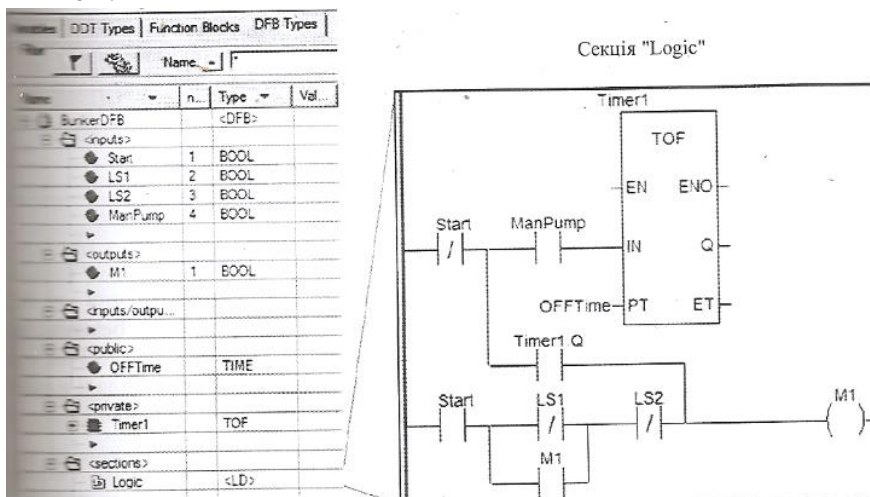 DDT Types
Function Blocks
DFB Types
Name
n...
Type
Val...
BunkerDFB
<DFB>
<inputs>
Start 1 BOOL
LS1 2 BOOL
LS2 3 BOOL
ManPump 4 BOOL
<outputs>
M1 1 BOOL
<inputs/outpu...
<public>
OFFTime TIME
<private>
Timer1 TOF
<sections>
Logic <LD>
Секція "Logic"
Timer1
TOF
EN ENO
Start
ManPump
IN Q
OFFTime PT ET
Timer1.Q
Start LS1 LS2 M1
M1